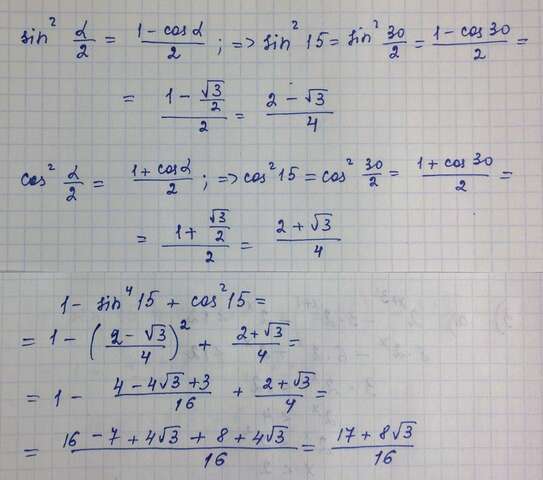 sin² α/2 = (1 - cosα)/2 ; => sin² 15 = sin² 30/2 = (1 - cos30)/2 =
= (1 - √3/2)/2 = (2 - √3)/4
cos² α/2 = (1 + cosα)/2 ; => cos² 15 = cos² 30/2 = (1 + cos 30)/2 =
= (1 + √3/2)/2 = (2 + √3)/4
1 - sin⁴ 15 + cos² 15 =
= 1 - ((2 - √3)/4)² + (2 + √3)/4 =
= 1 - (4 - 4√3 + 3)/16 + (2 + √3)/4 =
= (16 - 7 + 4√3 + 8 + 4√3)/16 = (17 + 8√3)/16